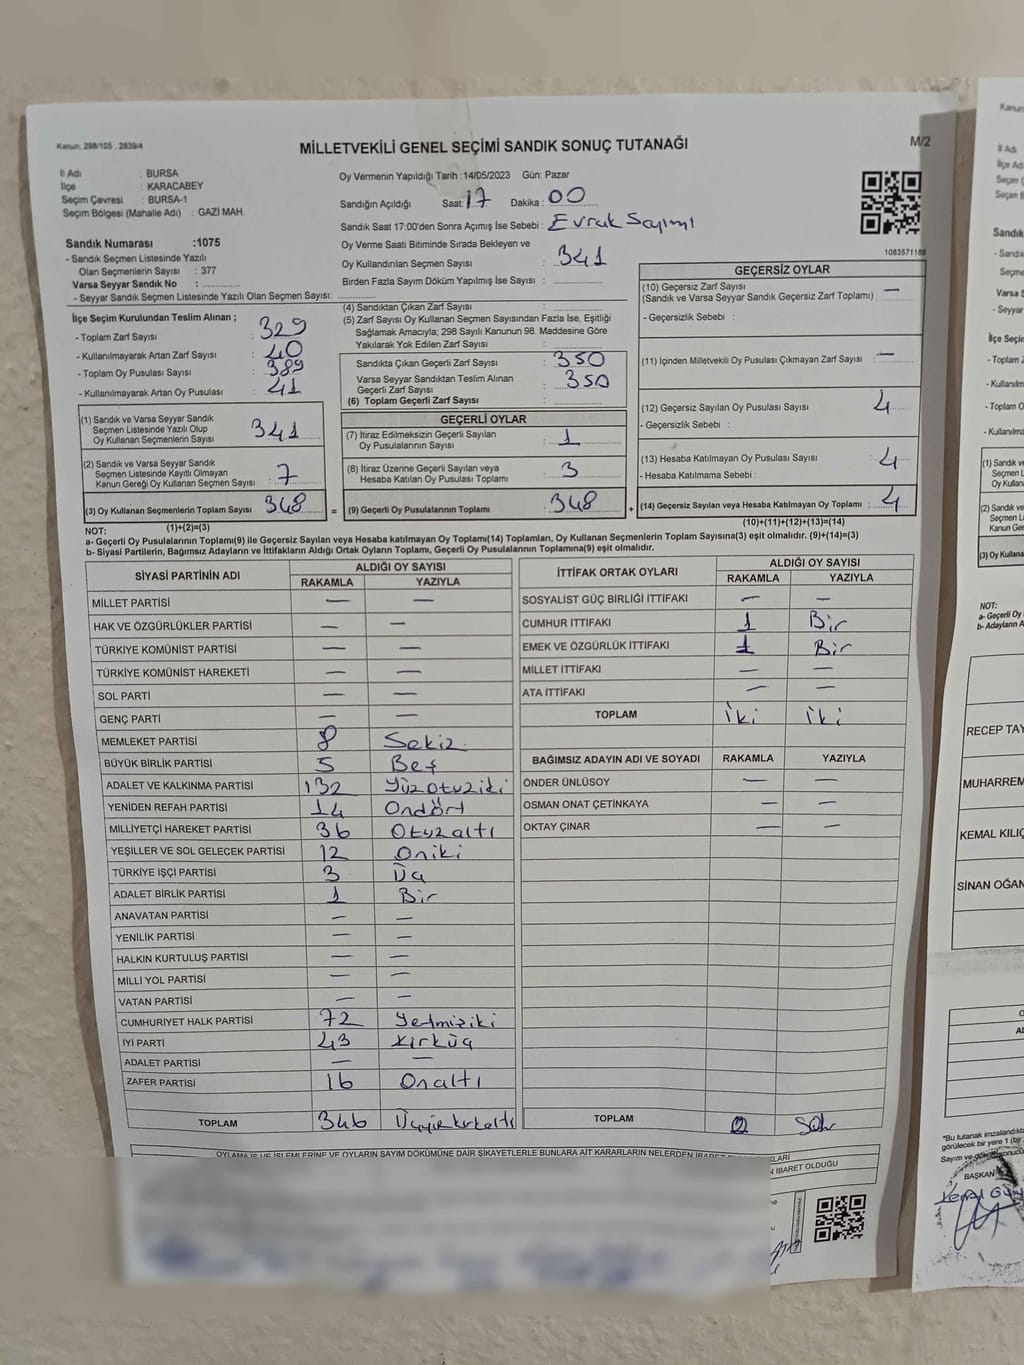 Kanun, 298/105 , 2839/4
MİLLETVEKİLİ GENEL SEÇİMİ SANDIK SONUÇ TUTANAĞI
M/2
İl Adı : BURSA
İlçe : KARACABEY
Seçim Çevresi : BURSA-1
Seçim Bölgesi (Mahalle Adı) : GAZİ MAH.
Sandık Numarası :1075
- Sandık Seçmen Listesinde Yazılı
Olan Seçmenlerin Sayısı : 377
Varsa Seyyar Sandık No :
- Seyyar Sandık Seçmen Listesinde Yazılı Olan Seçmen Sayısı:
Oy Vermenin Yapıldığı Tarih : 14/05/2023 Gün: Pazar
Sandığın Açıldığı Saat: 17 Dakika : 00
Sandık Saat 17:00'den Sonra Açımış İse Sebebi : Evrak Sayımı
Oy Verme Saati Bitiminde Sırada Bekleyen ve
Oy Kullandırılan Seçmen Sayısı : 341
Birden Fazla Sayım Döküm Yapılmış İse Sayısı :
1083571188
İlçe Seçim Kurulundan Teslim Alınan ;
- Toplam Zarf Sayısı : 329
- Kullanılmayarak Artan Zarf Sayısı : 40
- Toplam Oy Pusulası Sayısı : 389
- Kullanılmayarak Artan Oy Pusulası : 41
(1) Sandık ve Varsa Seyyar Sandık
Seçmen Listesinde Yazılı Olup
Oy Kullanan Seçmenlerin Sayısı : 341
(2) Sandık ve Varsa Seyyar Sandık
Seçmen Listesinde Kayıtlı Olmayan
Kanun Gereği Oy Kullanan Seçmen Sayısı : 7
(3) Oy Kullanan Seçmenlerin Toplam Sayısı : 348
(1)+(2)=(3)
(4) Sandıktan Çıkan Zarf Sayısı :
(5) Zarf Sayısı Oy Kullanan Seçmen Sayısından Fazla İse, Eşitliği
Sağlamak Amacıyla; 298 Sayılı Kanunun 98. Maddesine Göre
Yakılarak Yok Edilen Zarf Sayısı :
Sandıkta Çıkan Geçerli Zarf Sayısı : 350
Varsa Seyyar Sandıktan Teslim Alınan
Geçerli Zarf Sayısı : 350
(6) Toplam Geçerli Zarf Sayısı :
GEÇERLİ OYLAR
(7) İtiraz Edilmeksizin Geçerli Sayılan
Oy Pusulalarının Sayısı : 1
(8) İtiraz Üzerine Geçerli Sayılan veya
Hesaba Katılan Oy Pusulası Toplamı : 3
= (9) Geçerli Oy Pusulalarının Toplamı : 348 +
GEÇERSİZ OYLAR
(10) Geçersiz Zarf Sayısı
(Sandık ve Varsa Seyyar Sandık Geçersiz Zarf Toplamı) : —
- Geçersizlik Sebebi :
(11) İçinden Milletvekili Oy Pusulası Çıkmayan Zarf Sayısı : —
(12) Geçersiz Sayılan Oy Pusulası Sayısı : 4
- Geçersizlik Sebebi :
(13) Hesaba Katılmayan Oy Pusulası Sayısı : 4
- Hesaba Katılmama Sebebi :
(14) Geçersiz Sayılan veya Hesaba Katılmayan Oy Toplamı : 4
(10)+(11)+(12)+(13)=(14)
NOT:
a- Geçerli Oy Pusulalarının Toplamı(9) ile Geçersiz Sayılan veya Hesaba katılmayan Oy Toplamı(14) Toplamları, Oy Kullanan Seçmenlerin Toplam Sayısına(3) eşit olmalıdır. (9)+(14)=(3)
b- Siyasi Partilerin, Bağımsız Adayların ve İttifakların Aldığı Ortak Oyların Toplamı, Geçerli Oy Pusulalarının Toplamına(9) eşit olmalıdır.
SİYASİ PARTİNİN ADI ALDIĞI OY SAYISI
RAKAMLA YAZIYLA
MİLLET PARTİSİ — —
HAK VE ÖZGÜRLÜKLER PARTİSİ — —
TÜRKİYE KOMÜNİST PARTİSİ — —
TÜRKİYE KOMÜNİST HAREKETİ — —
SOL PARTİ — —
GENÇ PARTİ — —
MEMLEKET PARTİSİ 8 Sekiz
BÜYÜK BİRLİK PARTİSİ 5 Beş
ADALET VE KALKINMA PARTİSİ 132 Yüzotuziki
YENİDEN REFAH PARTİSİ 14 Ondört
MİLLİYETÇİ HAREKET PARTİSİ 36 Otuzaltı
YEŞİLLER VE SOL GELECEK PARTİSİ 12 Oniki
TÜRKİYE İŞÇİ PARTİSİ 3 Üç
ADALET BİRLİK PARTİSİ 1 Bir
ANAVATAN PARTİSİ — —
YENİLİK PARTİSİ — —
HALKIN KURTULUŞ PARTİSİ — —
MİLLİ YOL PARTİSİ — —
VATAN PARTİSİ — —
CUMHURİYET HALK PARTİSİ 72 Yetmişiki
İYİ PARTİ 43 Kırküç
ADALET PARTİSİ — —
ZAFER PARTİSİ 16 Onaltı
TOPLAM 346 Üçyüzkırkaltı
İTTİFAK ORTAK OYLARI ALDIĞI OY SAYISI
RAKAMLA YAZIYLA
SOSYALİST GÜÇ BİRLİĞİ İTTİFAKI — —
CUMHUR İTTİFAKI 1 Bir
EMEK VE ÖZGÜRLÜK İTTİFAKI 1 Bir
MİLLET İTTİFAKI — —
ATA İTTİFAKI — —
TOPLAM İki İki
BAĞIMSIZ ADAYIN ADI VE SOYADI RAKAMLA YAZIYLA
ÖNDER ÜNLÜSOY — —
OSMAN ONAT ÇETİNKAYA — —
OKTAY ÇINAR — —
TOPLAM
OYLAMA İŞ VE İŞLEMLERİNE VE OYLARIN SAYIM DÖKÜMÜNE DAİR ŞİKAYETLERLE BUNLARA AİT KARARLARIN NELERDEN İBARET
N İBARET OLDUĞU
Kanun
İl Adı
Sandık
Varsa S
NOT:
a- Geçerli Oy
b- Adayların A
RECEP TAY
MUHARREM
KEMAL KILIÇ
SİNAN OĞAN
*Bu tutanak imzalandıkta
görülecek bir yere 1 (bir
BAŞKAN